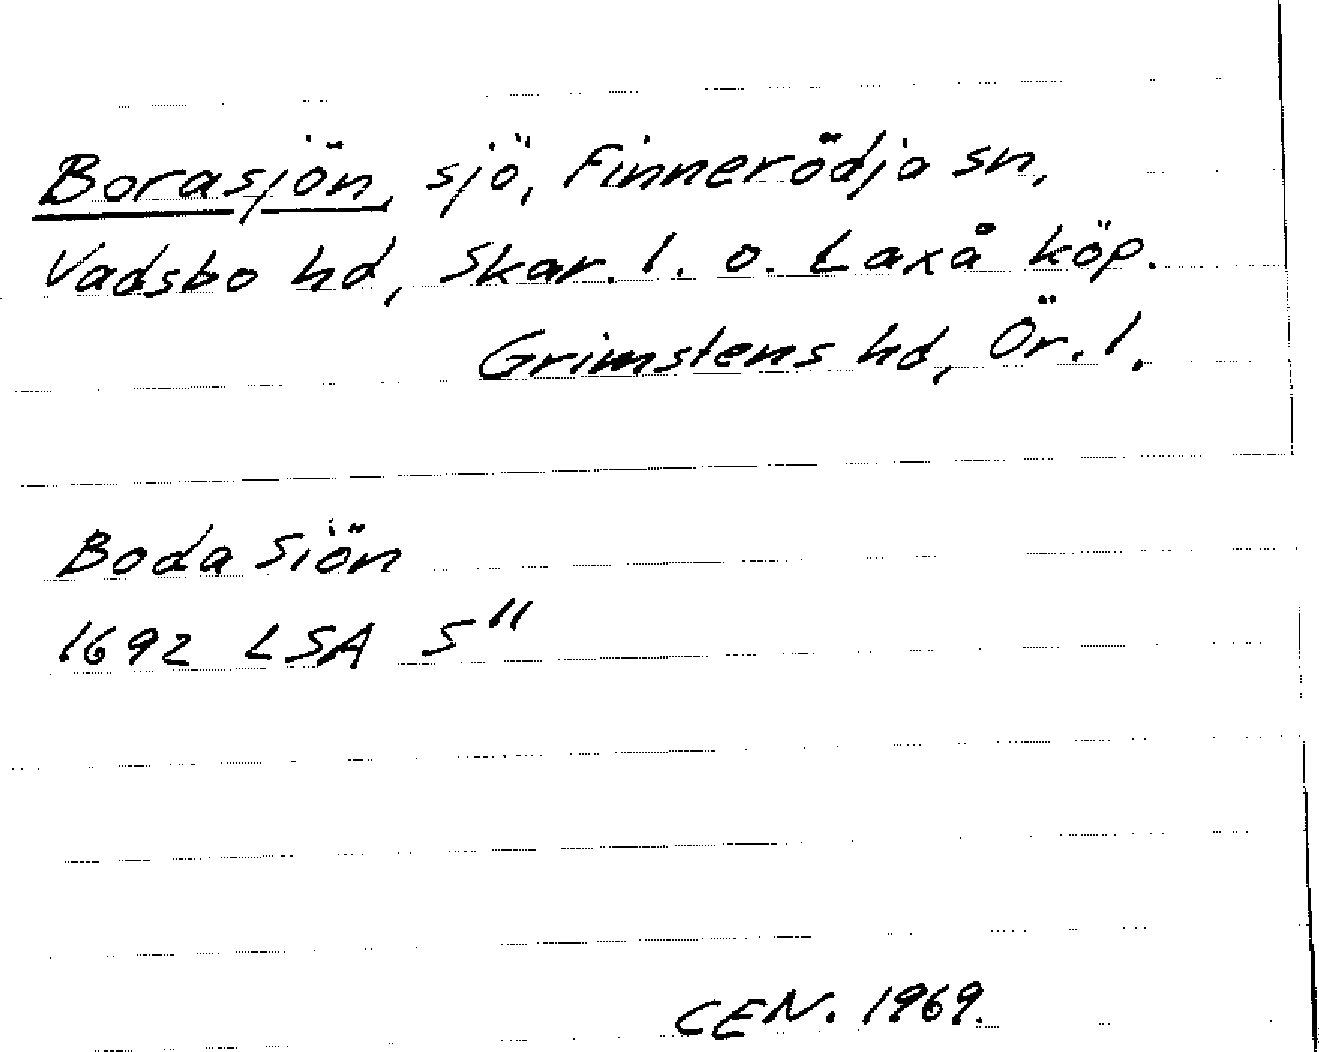 Borasjön, sjö, Finnerödja sn,
Vadsbo hd, Skar. l. o. Laxå köp.
Grimstens hd, Ör. l.
Boda Siön
1692 LSA S"
CEN. 1969.